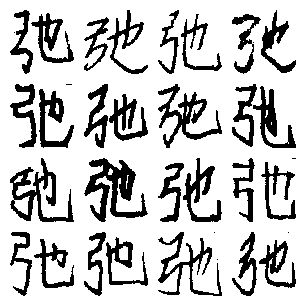 弛弛弛弛
弛弛弛弛
弛弛弛弛
弛弛弛弛